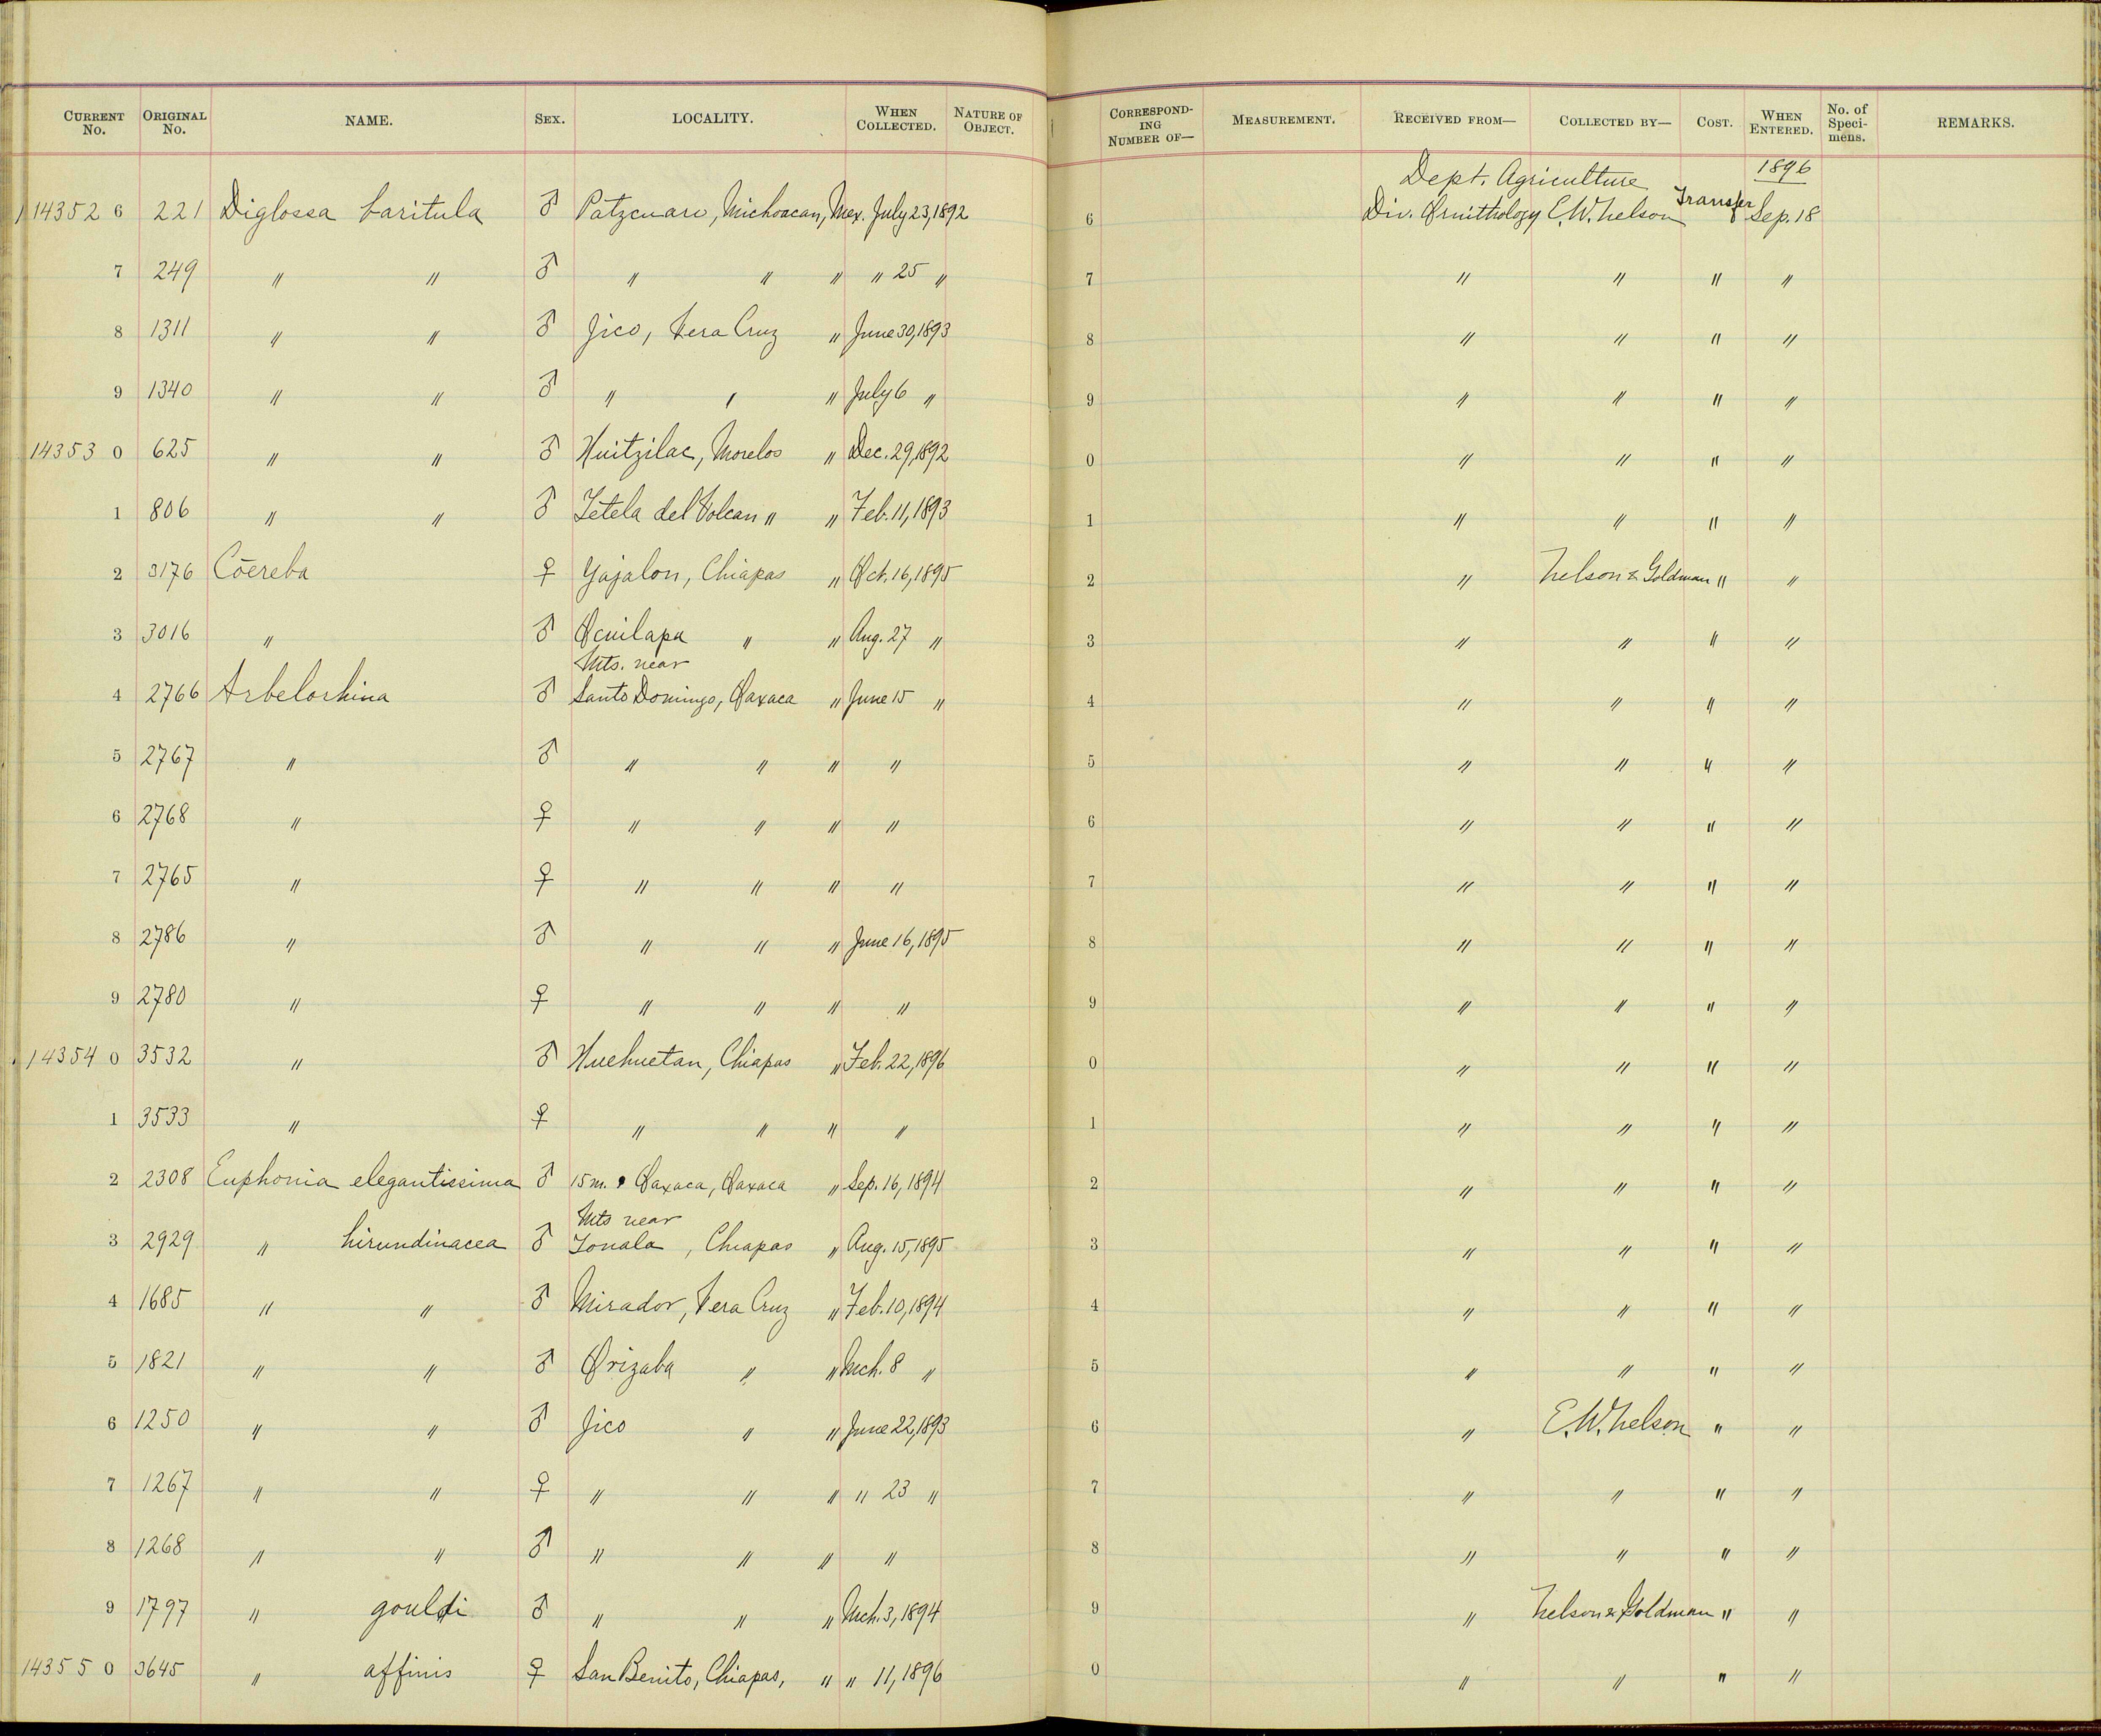 CURRENT No. ORIGINAL No. NAME. SEX. LOCALITY. WHEN COLLECTED. NATURE OF OBJECT. CORRESPONDING NUMBER OF— MEASUREMENT. RECEIVED FROM— COLLECTED BY— COST. WHEN ENTERED. No. of Specimens. REMARKS.
Dept. Agriculture 1896
14352 6 221 Diglossa baritula ♂ Patzcuaro, Michoacan, Mex. July 23, 1892 6 Div. Ornithology E.W. Nelson Transfer Sep. 18
7 249 " " ♂ " " " " 25 " 7 " " " "
8 1311 " " ♂ Jico, Vera Cruz " June 30, 1893 8 " " " "
9 1340 " " ♂ " " " July 6 " 9 " " " "
14353 0 625 " " ♂ Huitzilac, Morelos " Dec. 29, 1892 0 " " " "
1 806 " " ♂ Tetela del Volcan " " Feb. 11, 1893 1 " " " "
2 3176 Cōereba ♀ Yajalon, Chiapas " Oct. 16, 1895 2 " Nelson & Goldman " "
3 3016 " ♂ Ocuilapa " " Aug. 27 " 3 " " " "
Mts. near
4 2766 Arbelorhina ♂ Santo Domingo, Oaxaca " June 15 " 4 " " " "
5 2767 " ♂ " " " " 5 " " " "
6 2768 " ♀ " " " " 6 " " " "
7 2765 " ♀ " " " " 7 " " " "
8 2786 " ♂ " " " June 16, 1895 8 " " " "
9 2780 " ♀ " " " " 9 " " " "
14354 0 3532 " ♂ Huehuetan, Chiapas " Feb. 22, 1896 0 " " " "
1 3533 " ♀ " " " " 1 " " " "
2 2308 Euphonia elegantissima ♂ 15 m. Oaxaca, Oaxaca " Sep. 16, 1894 2 " " " "
Mts near
3 2929 " hirundinacea ♂ Tonala, Chiapas " Aug. 15, 1895 3 " " " "
4 1685 " " ♂ Mirador, Vera Cruz " Feb. 10, 1894 4 " " " "
5 1821 " " ♂ Orizaba " " Mch. 8 " 5 " " " "
6 1250 " " ♂ Jico " " June 22, 1893 6 " E.W. Nelson " "
7 1267 " " ♀ " " " " 23 " 7 " " " "
8 1268 " " ♂ " " " " 8 " " " "
9 1797 " gouldi ♂ " " " Mch. 3, 1894 9 " Nelson & Goldman " "
14355 0 3645 " affinis ♀ San Benito, Chiapas, " " 11, 1896 0 " " " "